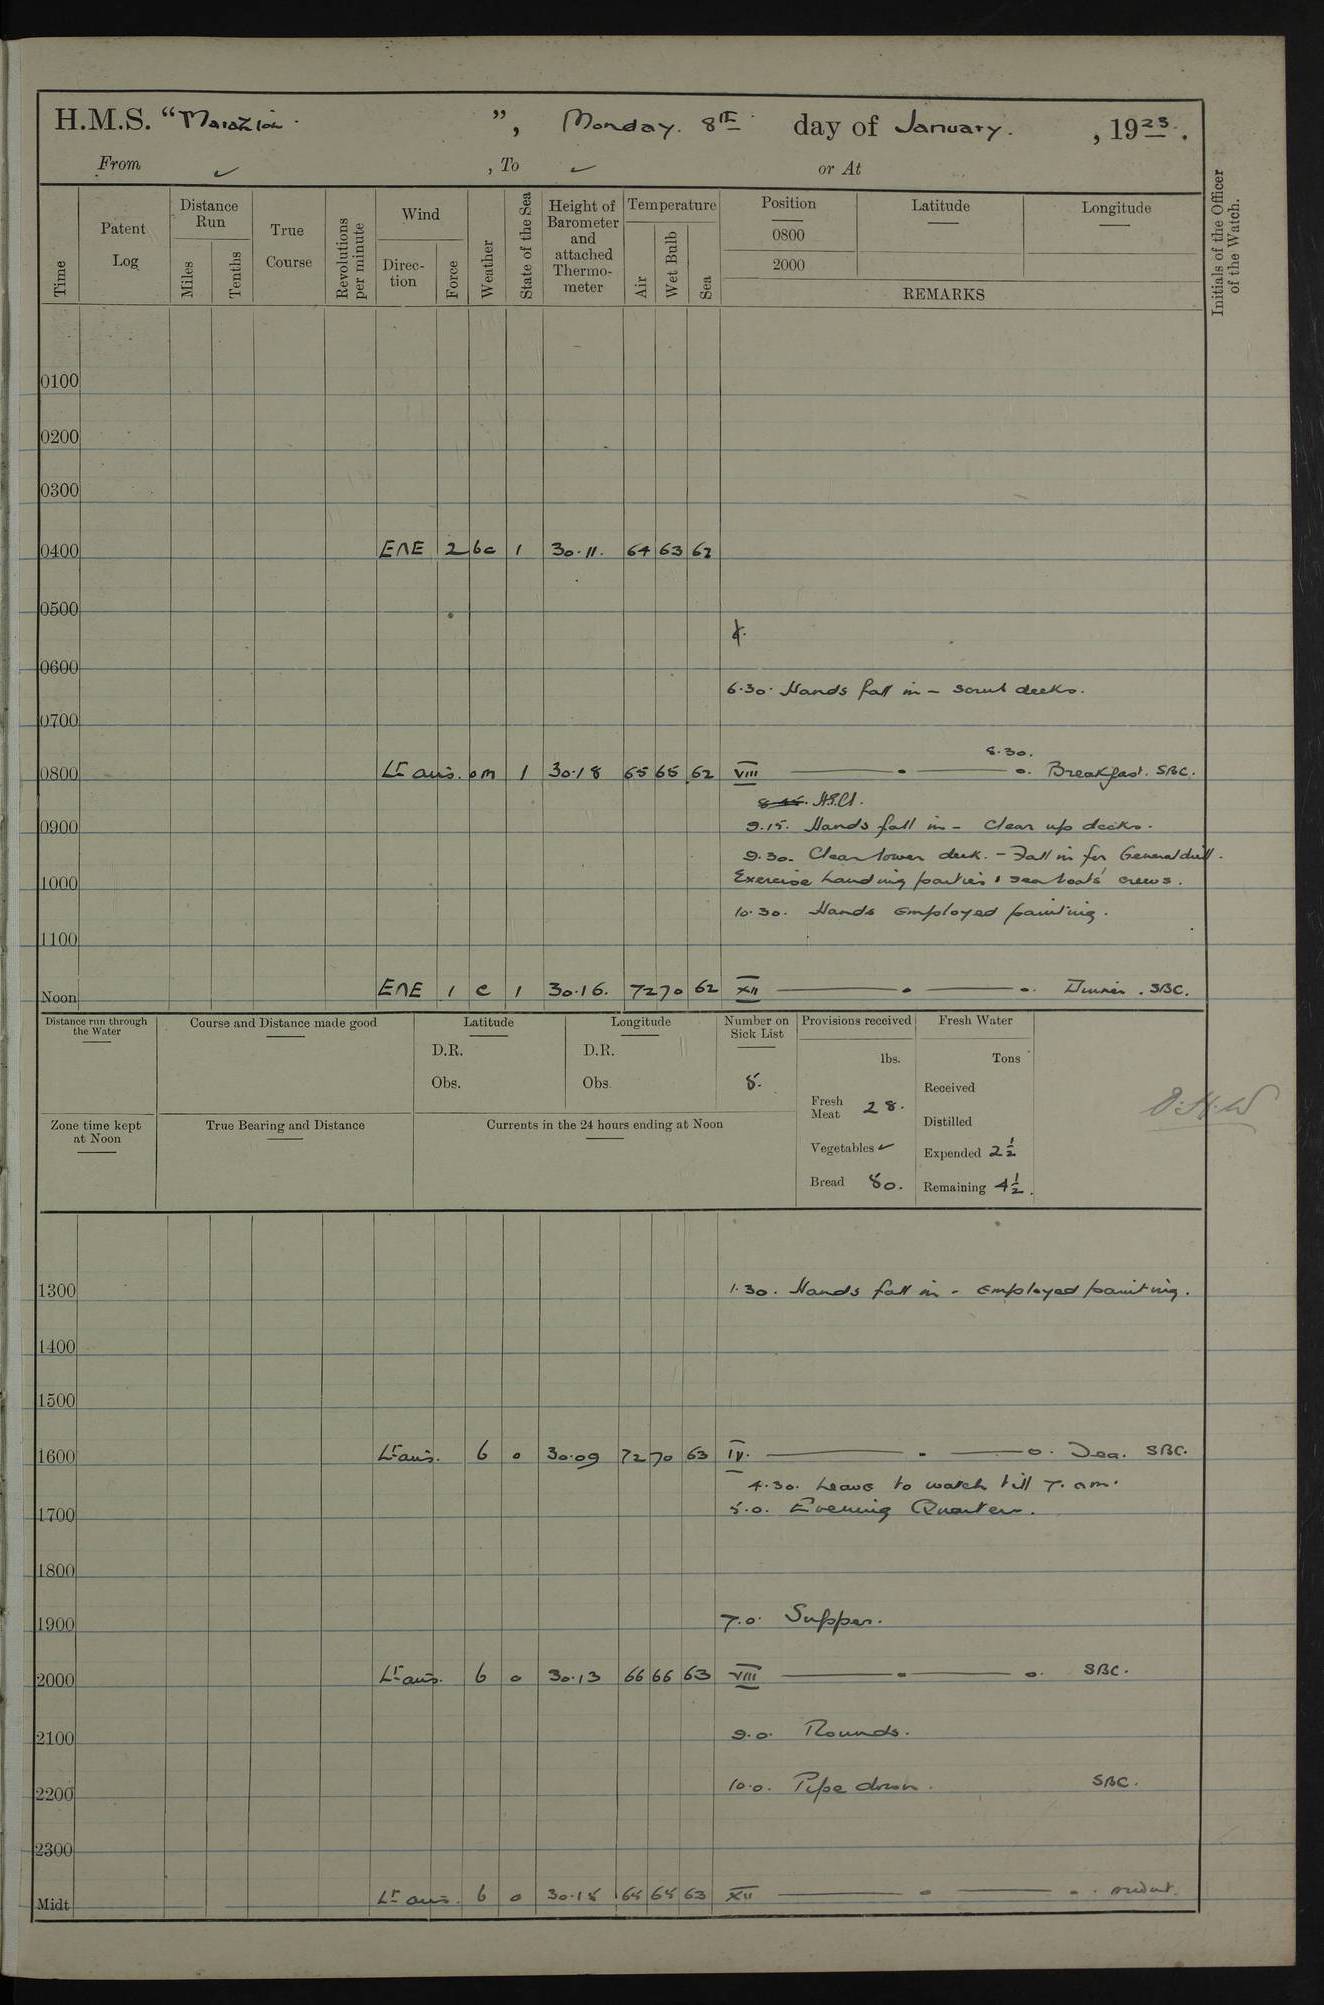 H.M.S. “Marazion.”, Monday. 8th day of January. , 1923.
From ✓ , To ✓ or At
Time Patent Log Distance Run Miles Tenths True Course Revolutions per minute Wind Direc-tion Force Weather State of the Sea Height of Barometer and attached Thermo-meter Temperature Air Wet Bulb Sea Position 0800 2000 Latitude Longitude
REMARKS
Initials of the Officer of the Watch.
0100
0200
0300
0400 ENE 2 bc 1 30.11. 64 63 62
0500
0600
6.30. Hands fall in – scrub decks.
0700
8.30.
0800 Lt airs. om 1 30.18 65 65 62 VIII Breakfast. SBC.
0900 9.15. Hands fall in – Clear up decks.
9.30. Clear lower deck. – Fall in for General drill.
1000 Exercise landing parties & sea boats' crews.
10.30. Hands employed painting.
1100
Noon ENE 1 c 1 30.16. 72 70 62 XII Dinner. SBC.
Distance run through the Water
Course and Distance made good
Latitude D.R. Obs.
Longitude D.R. Obs.
Number on Sick List 5.
Provisions received lbs.
Fresh Meat 28.
Vegetables ✓
Bread 80.
Fresh Water Tons
Received
Distilled
Expended 2½
Remaining 4½.
Zone time kept at Noon
True Bearing and Distance
Currents in the 24 hours ending at Noon
1300 1.30. Hands fall in – employed painting.
1400
1500
1600 Lt airs. b 0 30.09 72 70 63 IV. Tea. SBC.
4.30. Leave to watch till 7. am.
1700 5.0. Evening Quarters.
1800
1900 7.0. Supper.
2000 Lt airs. b 0 30.13 66 66 63 VIII SBC.
2100 9.0. Rounds.
2200 10.0. Pipe down. SBC.
2300
Midt Lt airs. b 0 30.15 65 65 63 XII